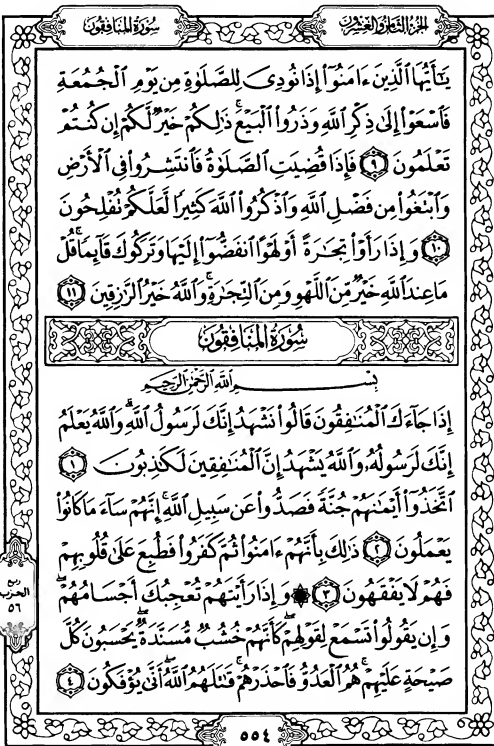 الجزء الثامن والعشرون
سورة المنافقون
يَٰٓأَيُّهَا ٱلَّذِينَ ءَامَنُوٓا۟ إِذَا نُودِىَ لِلصَّلَوٰةِ مِن يَوْمِ ٱلْجُمُعَةِ
فَٱسْعَوْا۟ إِلَىٰ ذِكْرِ ٱللَّهِ وَذَرُوا۟ ٱلْبَيْعَ ۚ ذَٰلِكُمْ خَيْرٌ لَّكُمْ إِن كُنتُمْ
تَعْلَمُونَ ٩ فَإِذَا قُضِيَتِ ٱلصَّلَوٰةُ فَٱنتَشِرُوا۟ فِى ٱلْأَرْضِ
وَٱبْتَغُوا۟ مِن فَضْلِ ٱللَّهِ وَٱذْكُرُوا۟ ٱللَّهَ كَثِيرًا لَّعَلَّكُمْ تُفْلِحُونَ
١٠ وَإِذَا رَأَوْا۟ تِجَٰرَةً أَوْ لَهْوًا ٱنفَضُّوٓا۟ إِلَيْهَا وَتَرَكُوكَ قَآئِمًا ۚ قُلْ
مَا عِندَ ٱللَّهِ خَيْرٌ مِّنَ ٱللَّهْوِ وَمِنَ ٱلتِّجَٰرَةِ ۚ وَٱللَّهُ خَيْرُ ٱلرَّٰزِقِينَ ١١
سورة المنافقون
بِسْمِ ٱللَّهِ ٱلرَّحْمَٰنِ ٱلرَّحِيمِ
إِذَا جَآءَكَ ٱلْمُنَٰفِقُونَ قَالُوا۟ نَشْهَدُ إِنَّكَ لَرَسُولُ ٱللَّهِ ۗ وَٱللَّهُ يَعْلَمُ
إِنَّكَ لَرَسُولُهُۥ وَٱللَّهُ يَشْهَدُ إِنَّ ٱلْمُنَٰفِقِينَ لَكَٰذِبُونَ ١
ٱتَّخَذُوٓا۟ أَيْمَٰنَهُمْ جُنَّةً فَصَدُّوا۟ عَن سَبِيلِ ٱللَّهِ ۚ إِنَّهُمْ سَآءَ مَا كَانُوا۟
يَعْمَلُونَ ٢ ذَٰلِكَ بِأَنَّهُمْ ءَامَنُوا۟ ثُمَّ كَفَرُوا۟ فَطُبِعَ عَلَىٰ قُلُوبِهِمْ
فَهُمْ لَا يَفْقَهُونَ ٣ ۞ وَإِذَا رَأَيْتَهُمْ تُعْجِبُكَ أَجْسَامُهُمْ ۖ
وَإِن يَقُولُوا۟ تَسْمَعْ لِقَوْلِهِمْ ۖ كَأَنَّهُمْ خُشُبٌ مُّسَنَّدَةٌ ۖ يَحْسَبُونَ كُلَّ
صَيْحَةٍ عَلَيْهِمْ ۚ هُمُ ٱلْعَدُوُّ فَٱحْذَرْهُمْ ۚ قَٰتَلَهُمُ ٱللَّهُ ۖ أَنَّىٰ يُؤْفَكُونَ ٤
ربع
الحزب
٥٦
٥٥٤